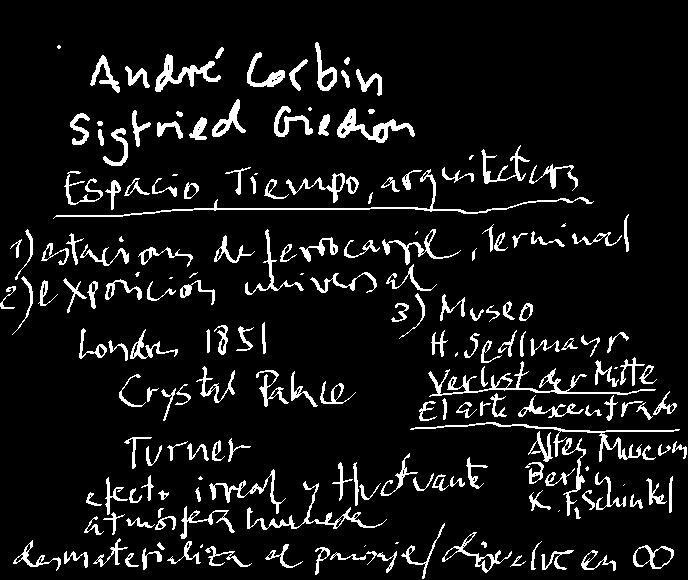 André Corbin
Sigfried Giedion
Espacio, Tiempo, arquitectura
1) estaciones de ferrocarril, Terminal
2) exposición universal
Londres 1851
Crystal Palace
Turner
efecto irreal y fluctuante
atmósfera humeda
desmaterializa el paisaje/disuelve en ∞
3) Museo
H. Sedlmayr
Verlust der Mitte
El arte descentrado
Altes Museum
Berlin
K. F. Schinkel